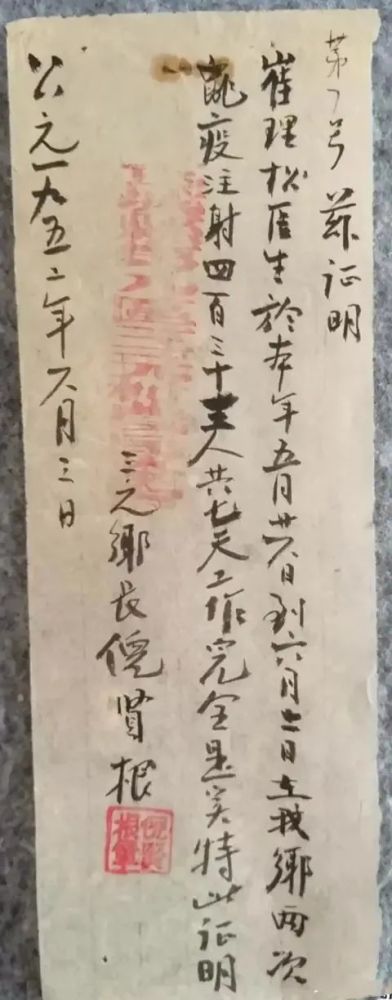 第号 兹证明
崔理松医生於本年五月廿日到六月二日在我鄉兩次
鼠疫注射四百三十人共七天工作完全是实特此证明
三元鄉长倪賢根
倪賢根章
公元一九五二年六月三日